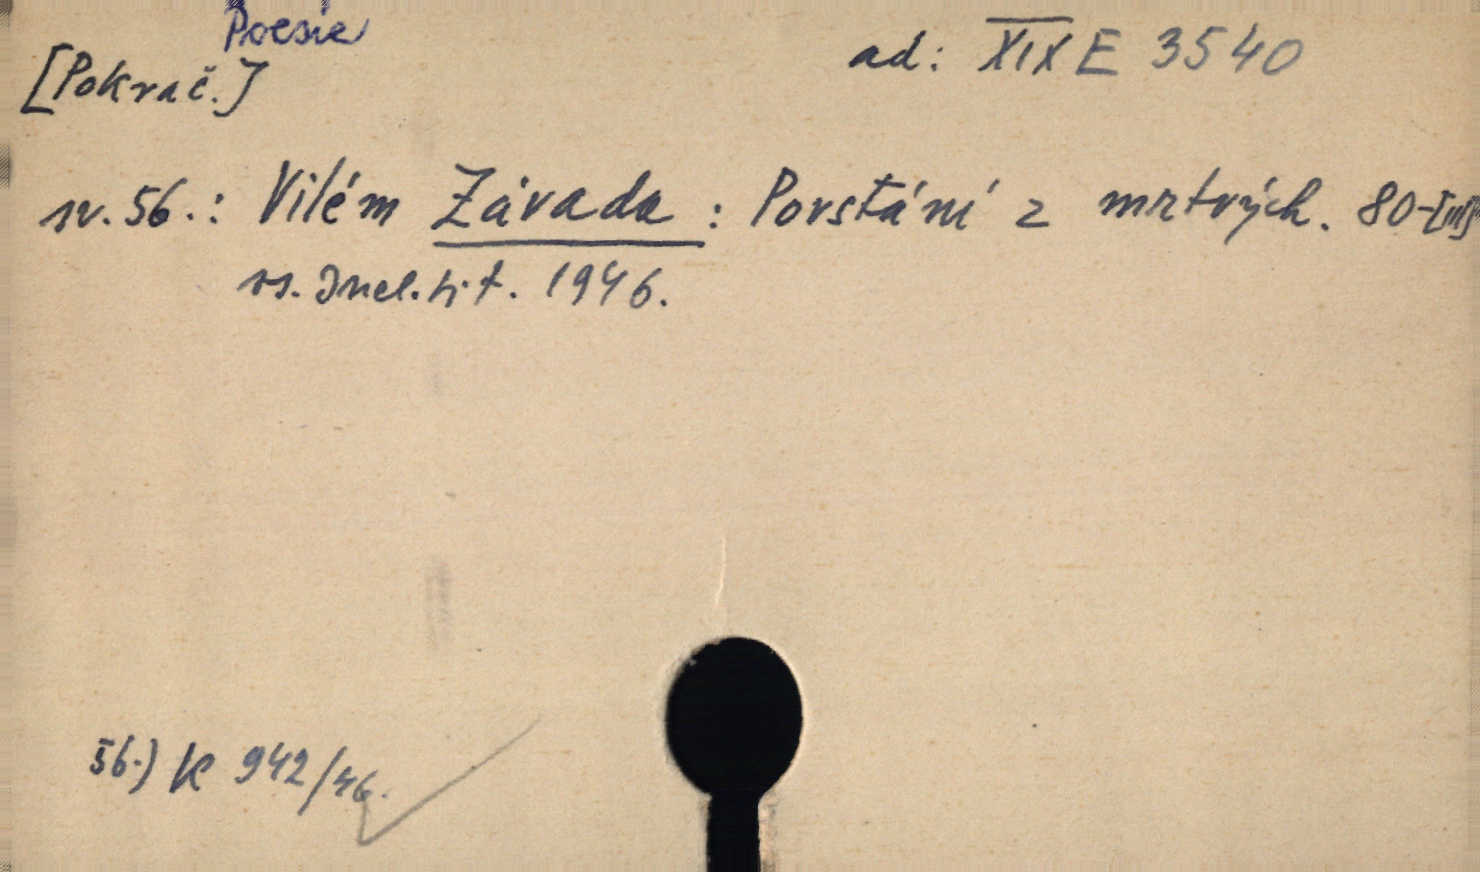 Poesie
[Pokrač.]
ad: XIX E 3540
sv. 56.: Vilém Závada: Povstání z mrtvých. 80-[III]
vs. Incl. tit. 1946.
56.) K 942/46.